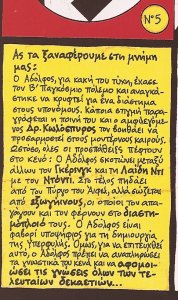 Nº5
Ας τα ξαναφέρουμε στη μνήμη
μας:
Ο Αδόλφος, για κακή του τύχη, έχασε
τον Β' Παγκόσμιο πόλεμο και αναγκά-
στηκε να κρυφτεί για ένα διάστημα
στους υπονόμους. Κάποια στιγμή παρα-
γράφεται η ποινή του και ο αμφιλεγόμε-
νος Δρ. Κωλόσπυρος τον βοηθάει να
προσαρμοστεί στους μοντέρνους καιρούς.
Ωστόσο, όλες οι προσπάθειές πέφτουν
στο κενό: Ο Αδόλφος σκοτώνει μεταξύ
άλλων τον Γκέρινγκ και τη Λαίδη Ντι
με τον Ντόντι. Στο τέλος πηδάει
από τον Πύργο του Άιφελ, αλλά σώζεται
από εξωγήινους, οι οποίοι τον απα-
γάγουν και τον φέρνουν στο διαστη-
μόπλοιό τους. Ο Αδόλφος είναι
σοβαρός υποψήφιος για τη δημιουργία
της Υπερφυλής. Όμως, για να επιτευχθεί
αυτό, ο Αδόλφος πρέπει να αναπληρώσει
τα γνωστικά του κενά και να αφομοι-
ώσει τις γνώσεις όλων των τε-
λευταίων δεκαετιών...